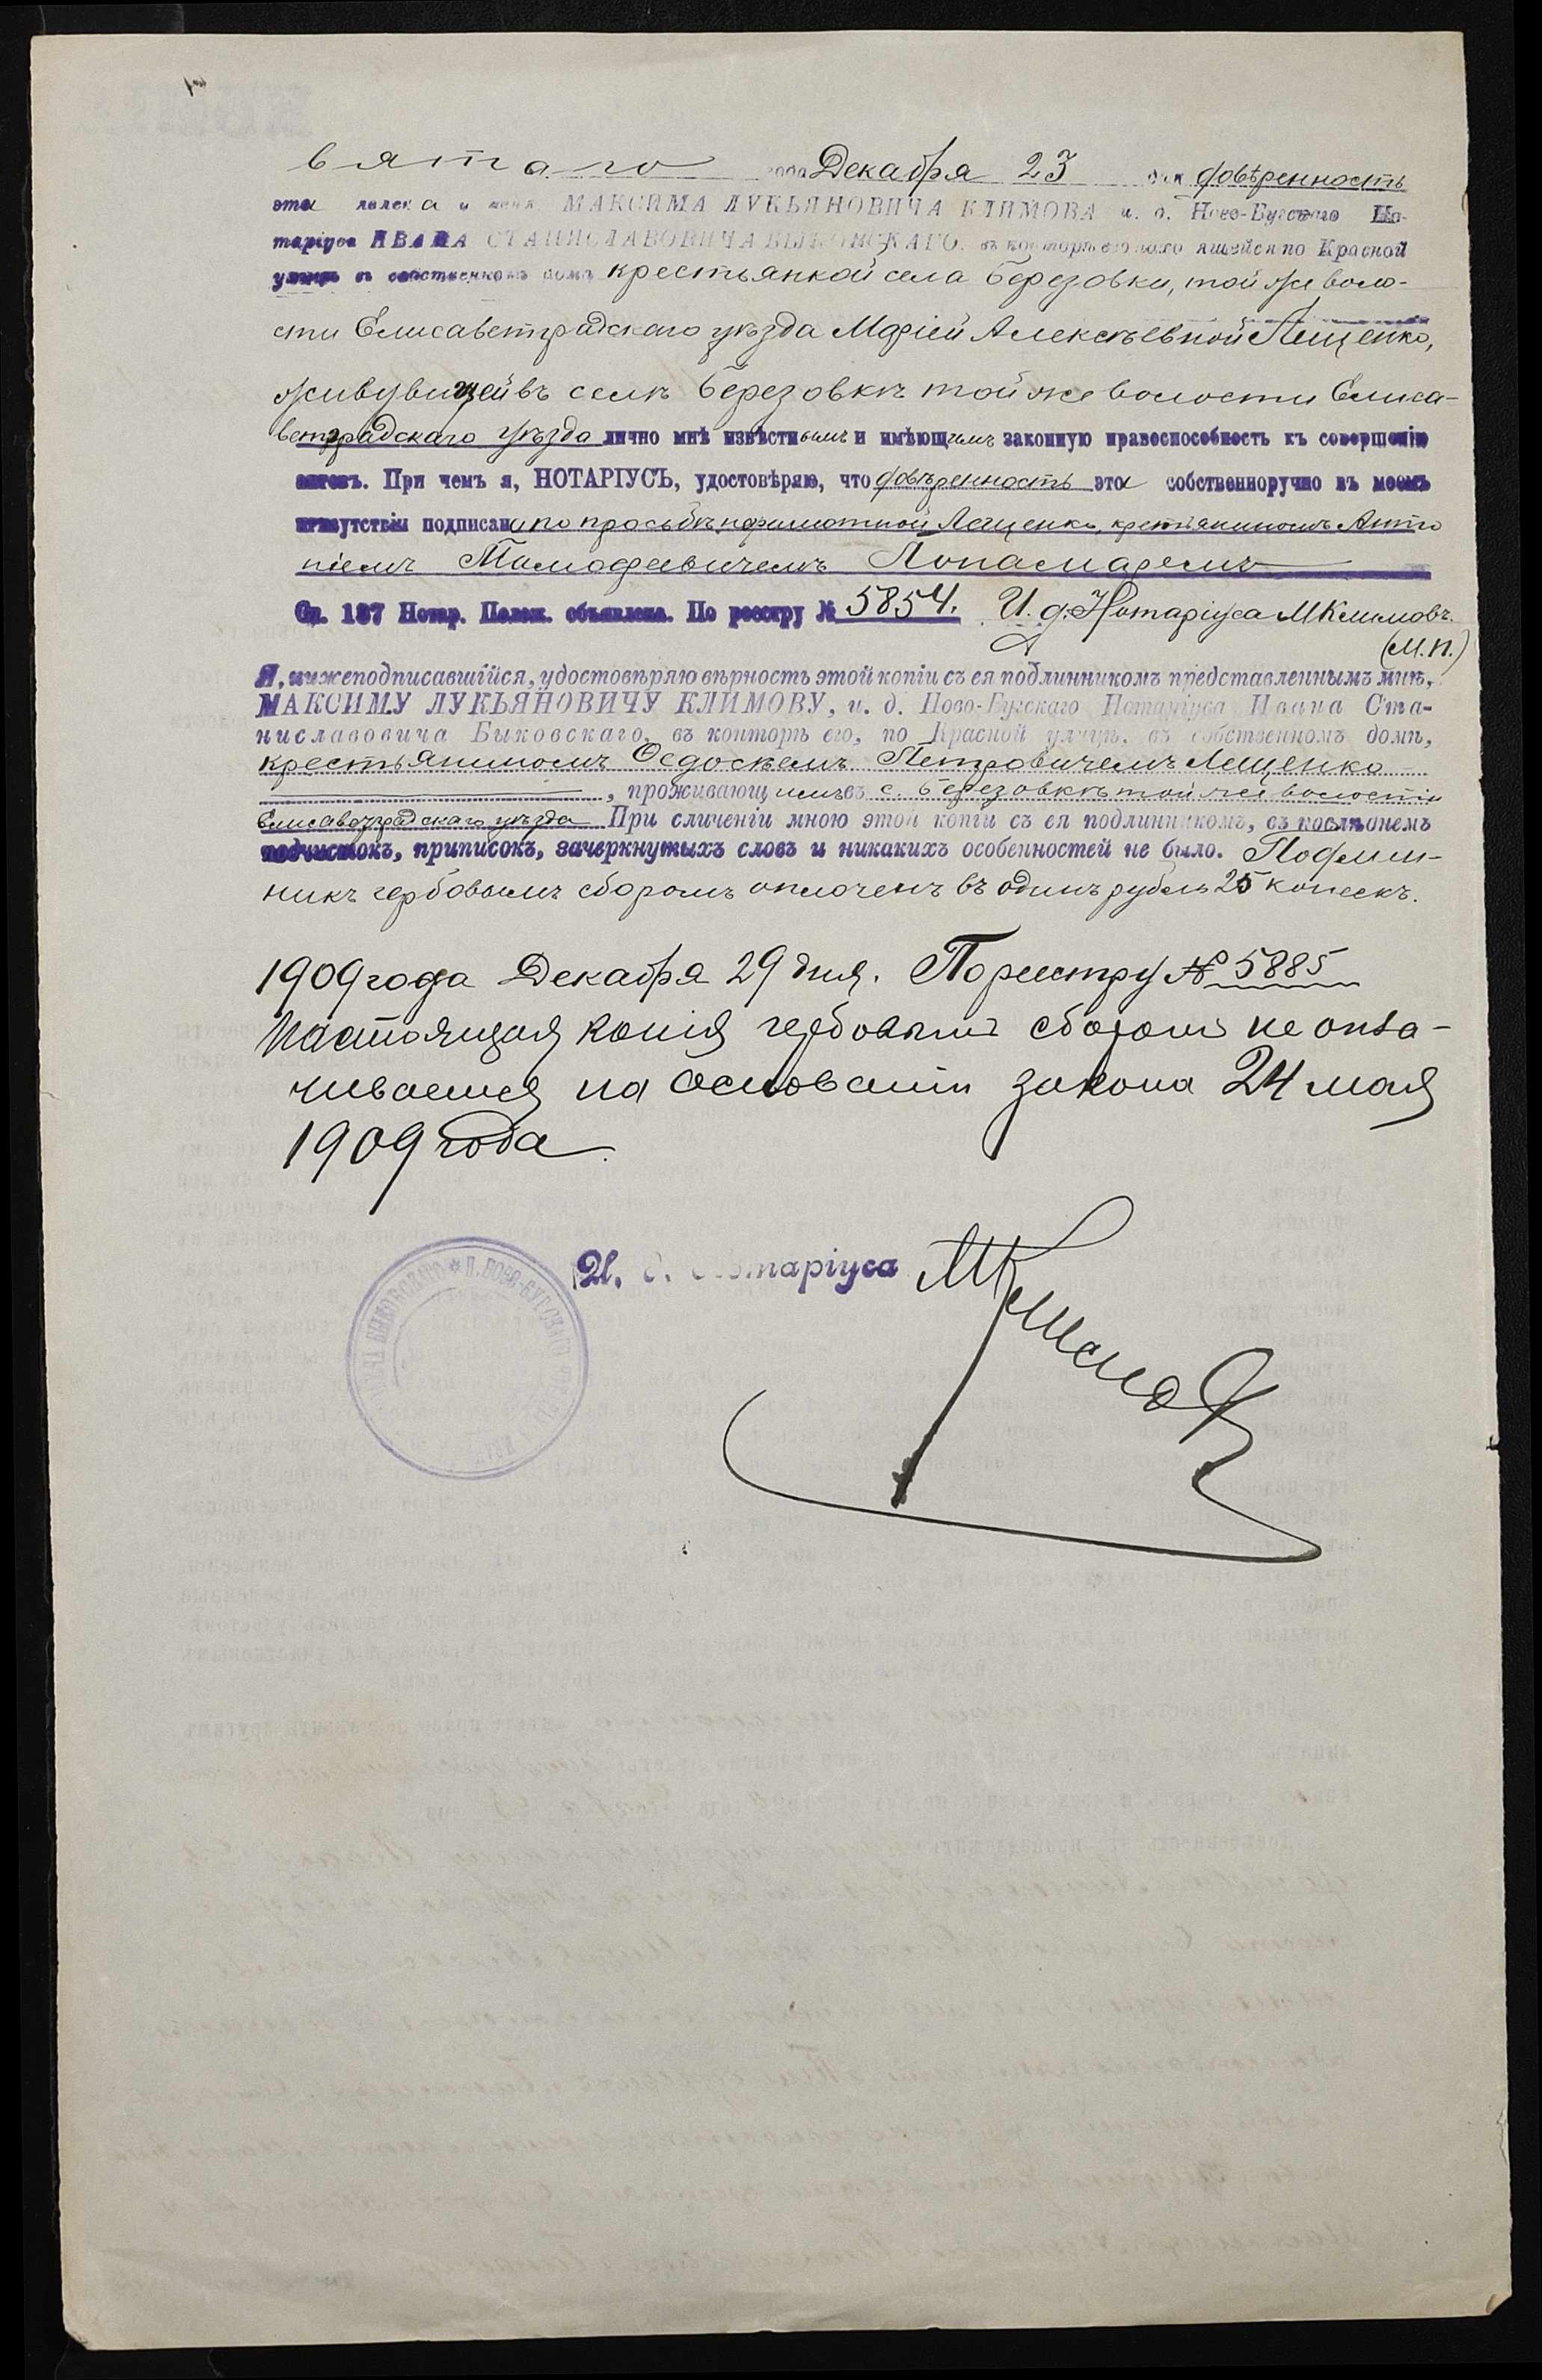 вятаго года Декабря 23 дня довѣренность
эта явлена у меня МАКСИМА ЛУКЬЯНОВИЧА КЛИМОВА и. д. Ново-Бугскаго Но-
таріуса ИВАНА СТАНИСЛАВОВИЧА БЫКОВСКАГО, въ конторѣ его находящейся по Красной
улицѣ въ собственномъ домѣ крестьянкой села Березовки, той же воло-
сти Елисаветградскаго уѣзда Маріей Алексѣевной Лещенко,
живущей въ селѣ Березовкѣ той же волости Елиса-
ветградскаго уѣзда лично мнѣ извѣстнымъ и имѣющимъ законную правоспособность къ совершенію
актовъ. При чемъ я, НОТАРІУСЪ, удостовѣряю, что довѣренность эта собственноручно въ моемъ
присутствіи подписана по просьбѣ неграмотной Лещенко, крестьяниномъ Анто
ніемъ Тимофеевичемъ Понамаремъ
Ст. 137 Нотар. Полож. объявлена. По реестру № 5854. И. д. Нотаріуса МКлимовъ.
(М.П.)
Я, нижеподписавшійся, удостовѣряю вѣрность этой копіи съ ея подлинникомъ представленнымъ мнѣ,
МАКСИМУ ЛУКЬЯНОВИЧУ КЛИМОВУ, и. д. Ново-Бугскаго Нотаріуса Ивана Ста-
ниславовича Быковскаго, въ конторѣ его, по Красной улицѣ, въ собственномъ домѣ,
крестьяниномъ Ѳедосѣемъ Петровичемъ Лещенко
, проживающимъ въ с. Березовкѣ той же волости
Елисаветградскаго уѣзда При сличеніи мною этой копіи съ ея подлинникомъ, въ послѣднемъ
подчистокъ, приписокъ, зачеркнутыхъ словъ и никакихъ особенностей не было. Подлин-
никъ гербовымъ сборомъ оплоченъ въ одинъ рубль 25 копеекъ.
1909 года Декабря 29 дня. По реестру № 5885
Настоящая копія гербовымъ сборомъ не опла-
чивается на основаніи закона 24 мая
1909 года.
И. д. Нотаріуса МКлимовъ